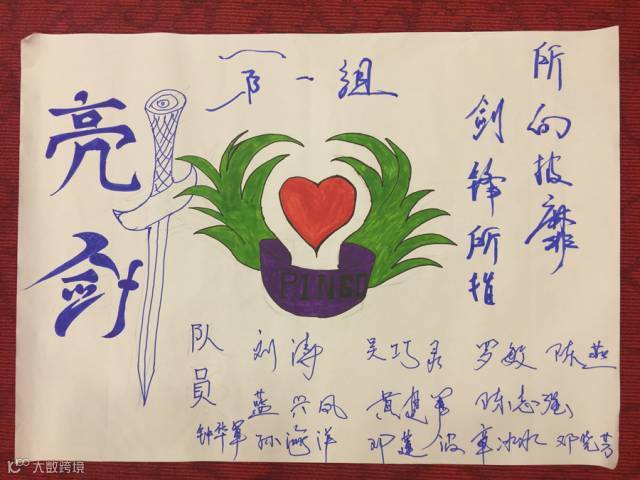 第一组
亮剑
剑锋所指
所向披靡
PINGO
队员
刘涛 吴巧灵 罗敏 陈燕
蓝兴凤 黄建军 陈志强
钟华军 孙海洋 邓莲波 覃冰冰 邓晓芳
大数跨境